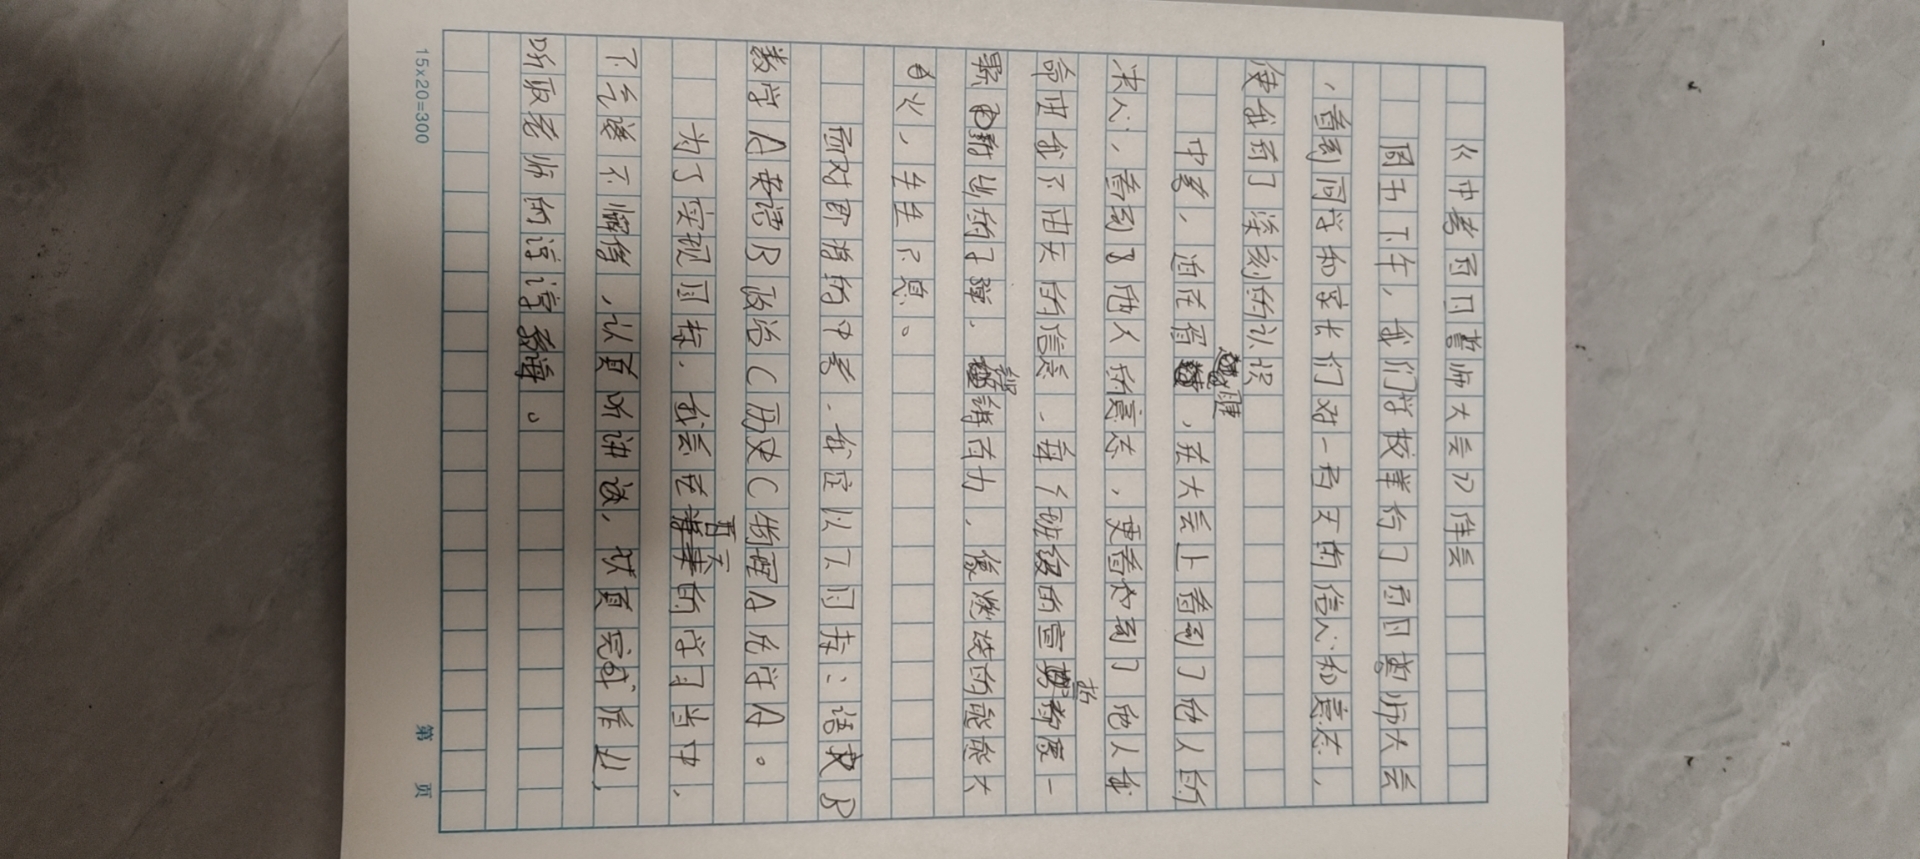 《中考百日誓师大会》体会
周五下午，我们学校举行了百日誓师大会
，看到同学和家长们对一百天的信心和意志，
使我有了深刻的认识
中考，迫在眉睫，在大会上看到了他人的
决心，看到了他人的意志，更看到了他人
命由我不由天的信念，每个班级的宣誓都像一
颗射出的子弹，铿锵有力，像燃烧的熊熊大
火，生生不息。
面对即将的中考，我定以下目标：语文B
数学A英语B政治C历史C物理A化学A。
为了实现目标，我会在百天的学习当中，
不气馁不懈怠，认真听讲该，认真完成作业，
听取老师的谆谆教诲。
15×20=300
第 页